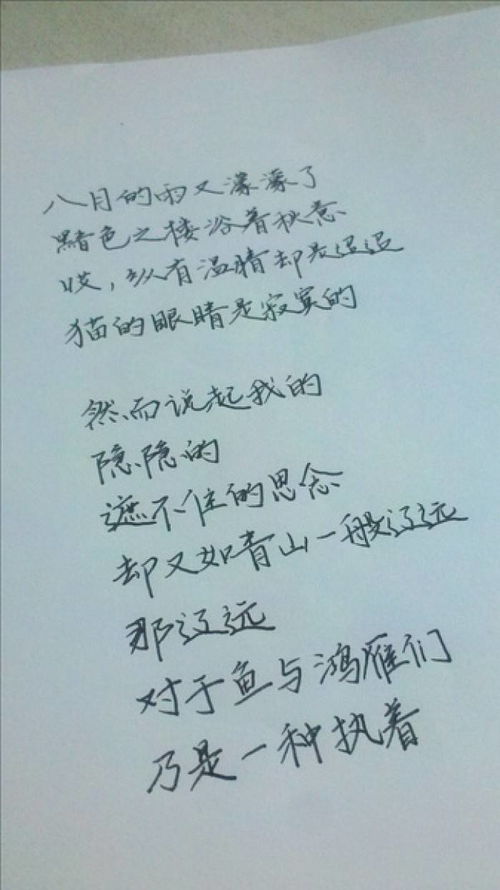 八月的雨又濛濛了
黯色之楼浴着秋意
哎，纵有温情却是迢迢
猫的眼睛是寂寞的
然而说起我的
隐隐的
遮不住的思念
却又如青山一般辽远
那辽远
对于鱼与鸿雁们
乃是一种执着